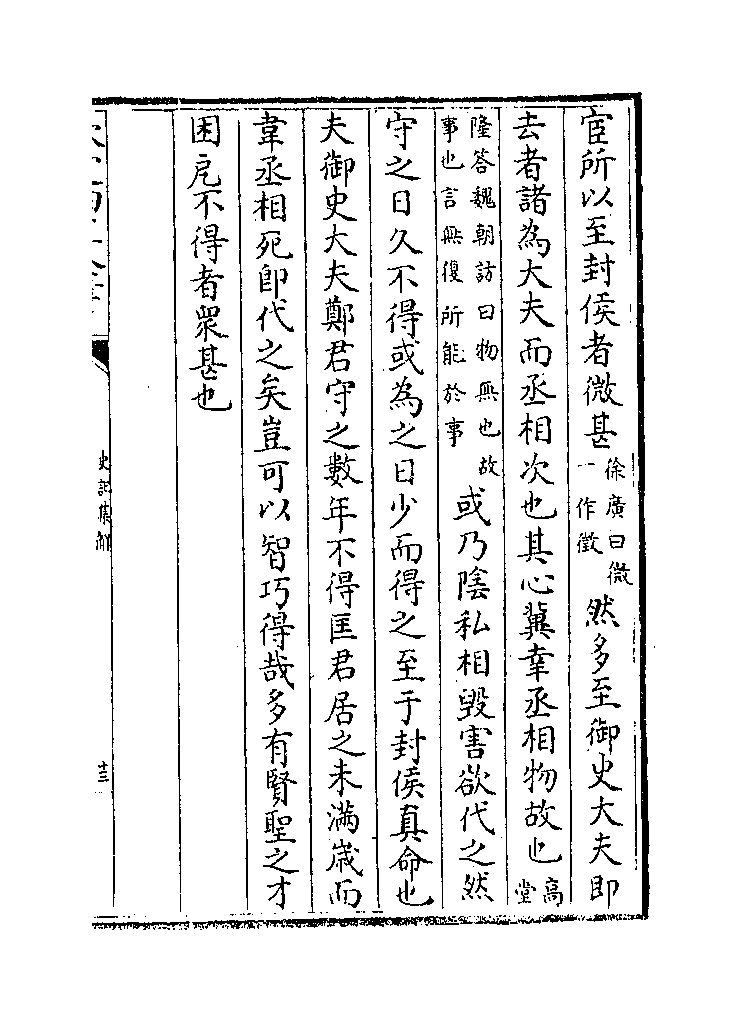 宦所以至封侯者微甚徐廣曰微一作徵然多至御史大夫即
去者諸為大夫而丞相次也其心冀幸丞相物故也高堂
隆答魏朝訪曰物無也故事也言無復所能於事或乃陰私相毀害欲代之然
守之日久不得或為之日少而得之至于封侯真命也
夫御史大夫鄭君守之數年不得匡君居之未滿歲而
韋丞相死即代之矣豈可以智巧得哉多有賢聖之才
困戹不得者衆甚也
史記集解
十三